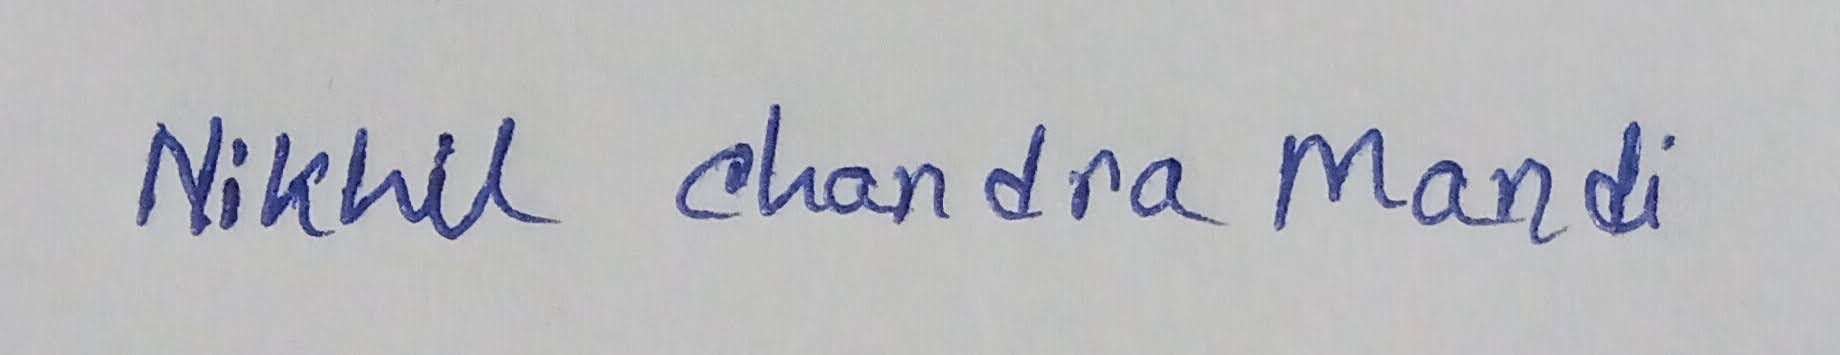 Nikhil chandra Mandi